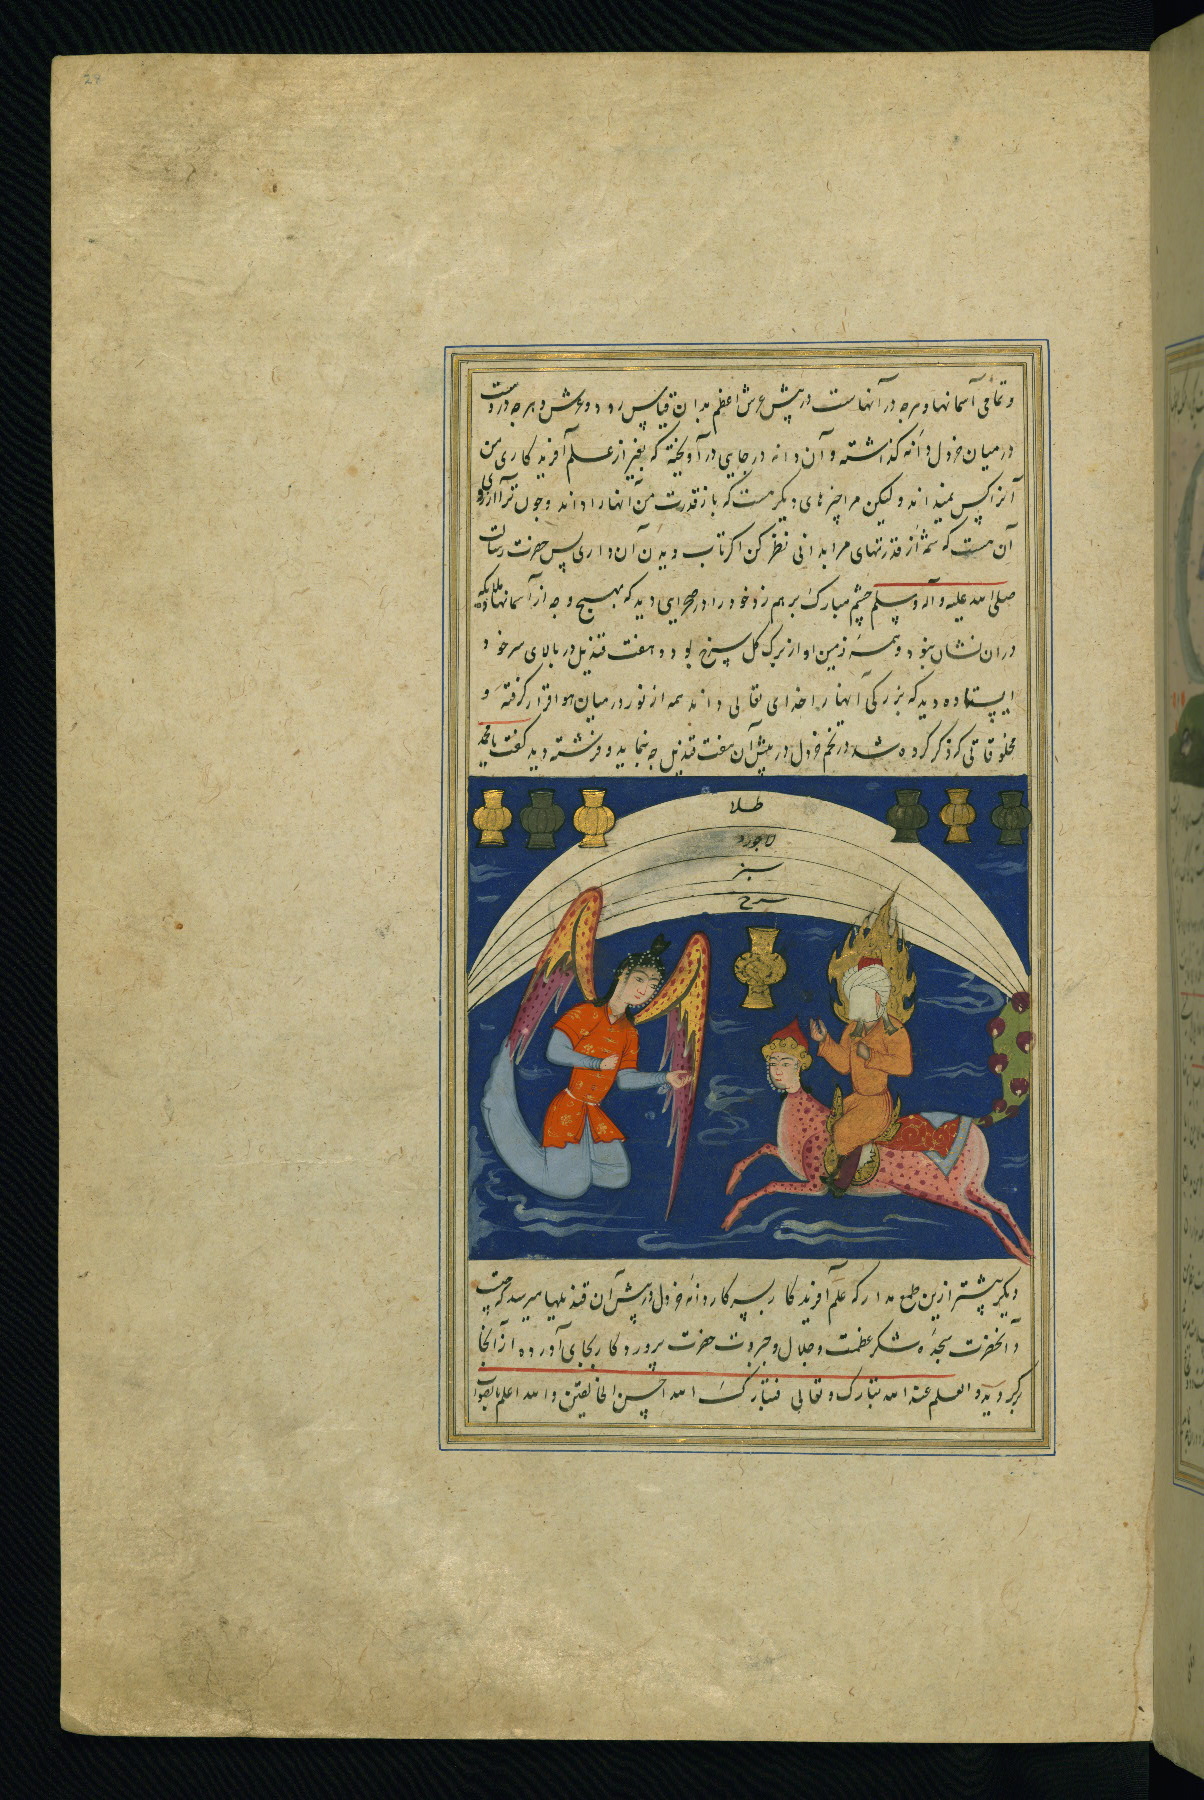 و تمامی آسمانها و هرچه در آنهاست در پیش عرش اعظم بدان قیاس رود و عرش و هرچه در وست
در میان خردل دانه گذاشته و آن دانه در جایی در آویخته که بغیر از علم آفریدکاری من
آنرا کس نمیداند ولیکن مرا چیزهای دیگر هست که باز قدرت من آنها را داند و چون ترا آرزوی
آن هست که شمه از قدرتهای مرا بدانی نظر کن اگر تاب دیدن آن داری پس حضرت رسالت
صلی الله علیه و آله وسلم چشم مبارک بر هم زد خود را در صحرایی دید که بهیچ وجه از آسمانها و ملایکه
در آن نشان نبود و همه زمین او از برک کل سرخ بود و هفت قندیل در بالای سر خود
ایستاده دید که بزرگی آنها را خدای تعالی داند همه از نور در میان هوا قرار گرفته و
مخلوقاتی که ذکر کرده شد در تخم خردل در پیش آن هفت قندیل چه نماید و فرشته دید گفت یا محمد
طلا
لاجورد
سبز
سرخ
دیگر پیشتر ازین طمع مدار که علم آفریدکار بسر کار دانه خردل در پیش آن قندیلها میرسد
و آنحضرت سجده شکر عظمت و جلال و جبروت حضرت پروردکار بجای آورده از آنجا
والعلم عند الله تبارک و تعالی فتبارک الله احسن الخالقین والله اعلم بالصواب